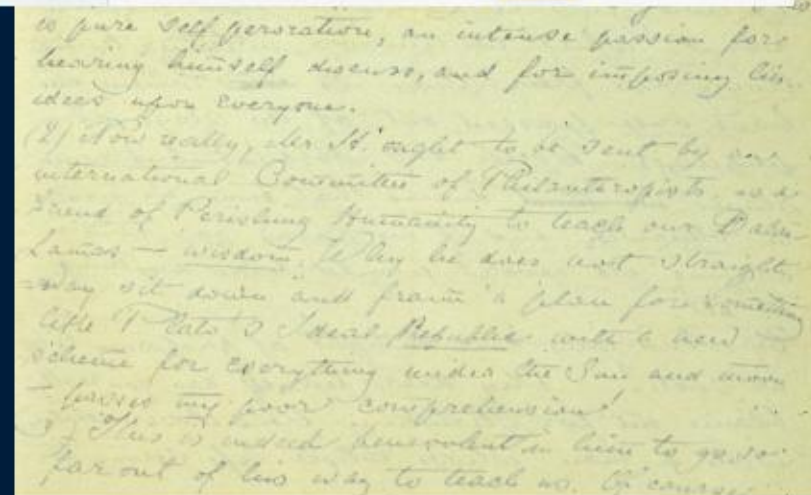 is pure self peroration, an intense passion for
hearing himself discuss, and for imposing his
ideas upon everyone.
(2) Now really, Mr H. ought to be sent by
international Committee of Philanthropists, as a
Friend of Perishing Humanity to teach our Dalai
Lamas — wisdom. Why he does not straight
-way sit down and frame a plan for something
like Plato's Ideal Republic with a new
scheme for everything under the Sun and moon
— passes my poor comprehension!
3) This is indeed benevolent in him to go so
far out of his way to teach us. Of course